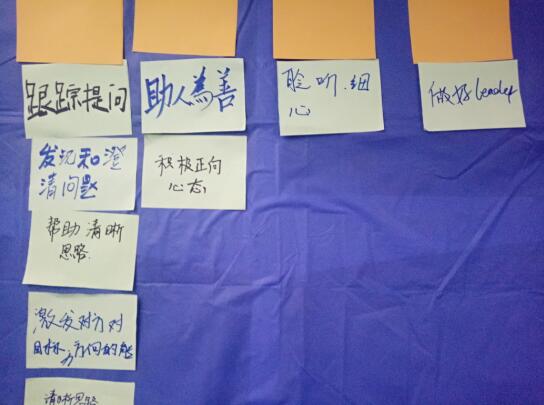 跟踪提问
发现和澄
清问题
帮助清晰
思路.
激发对方对
目标,方向的
清晰思路
助人為善
积极正向
心态
聆听.细
心
做好leader